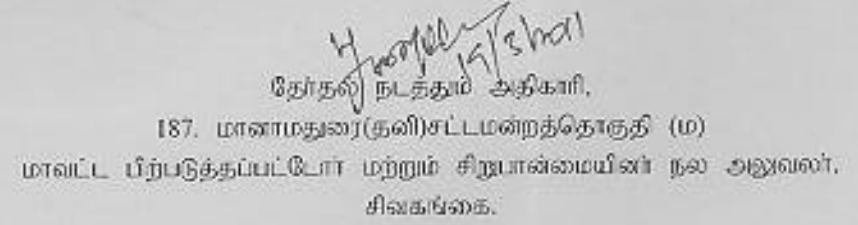 19/3/2021
தேர்தல் நடத்தும் அதிகாரி,
187. மானாமதுரை(தனி)சட்டமன்றத்தொகுதி (ம)
மாவட்ட பிற்படுத்தப்பட்டோர் மற்றும் சிறுபான்மையினர் நல அலுவலர்,
சிவகங்கை.